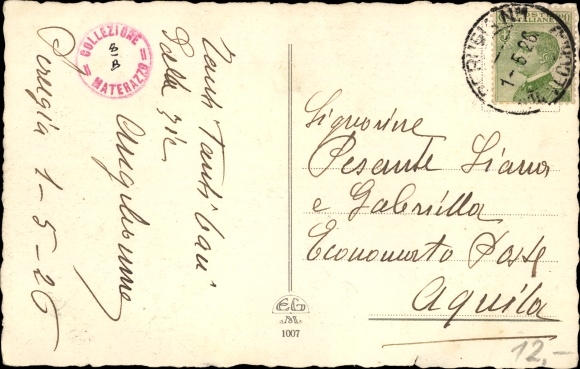 COLLEZIONE
MATERAZZO
Perugia 1-5-26
Tanti Tanti baci
Dalla zia
Signorine
Pesante Liana
e Gabriella
Economato Poste
Aquila
1-5-26
EG
1007
12,-